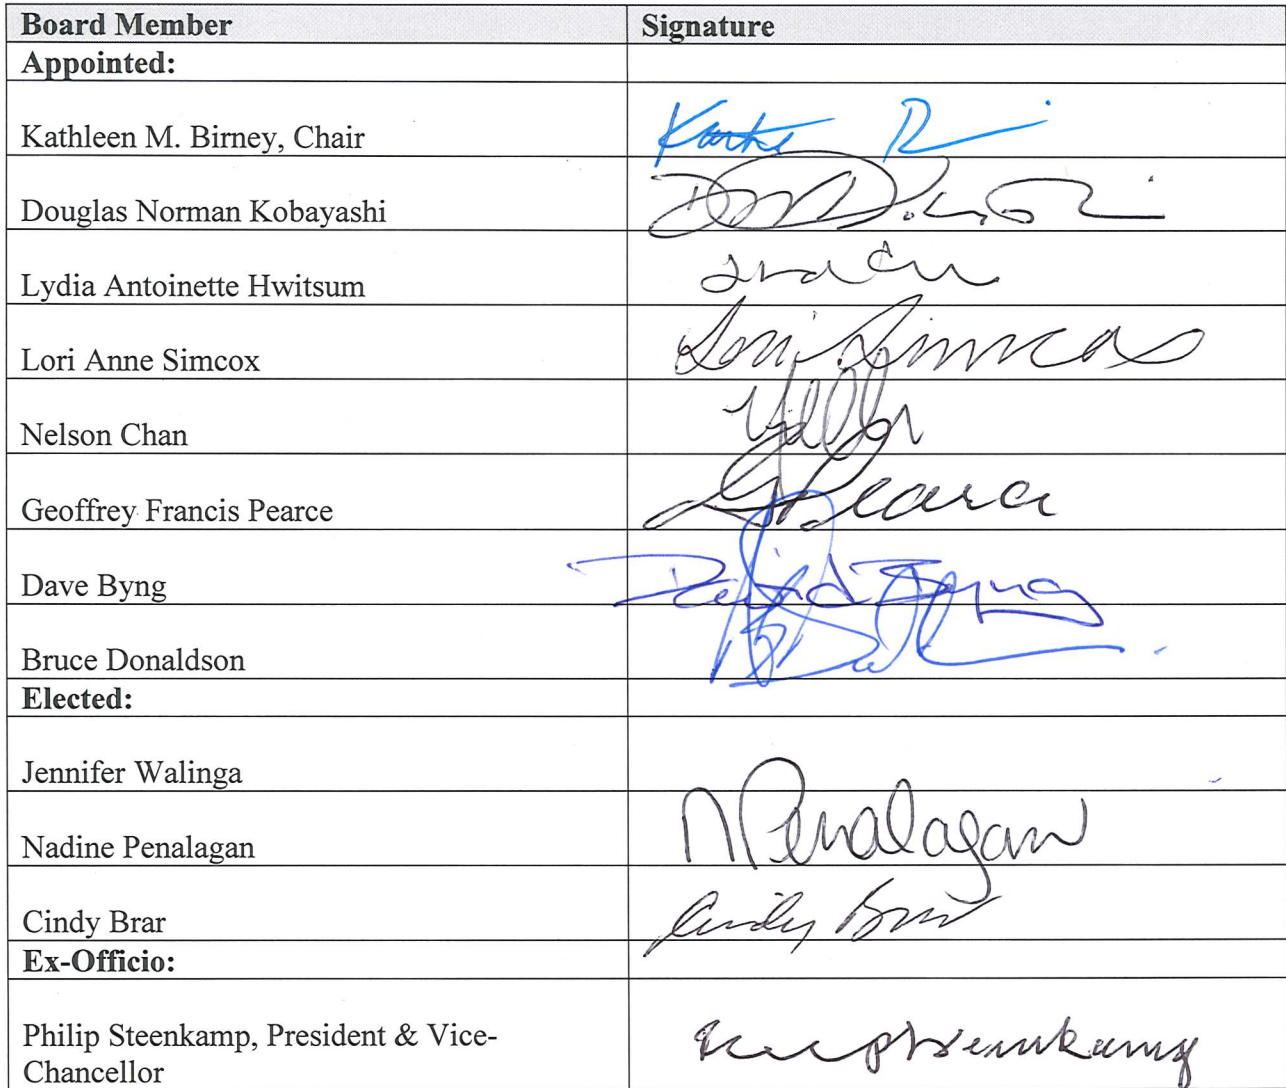 Board Member Signature
Appointed:
Kathleen M. Birney, Chair
Douglas Norman Kobayashi
Lydia Antoinette Hwitsum
Lori Anne Simcox Lori Simcox
Nelson Chan
Geoffrey Francis Pearce G Pearce
Dave Byng David Byng
Bruce Donaldson
Elected:
Jennifer Walinga
Nadine Penalagan N Penalagan
Cindy Brar Cindy Brar
Ex-Officio:
Philip Steenkamp, President & Vice-
Chancellor